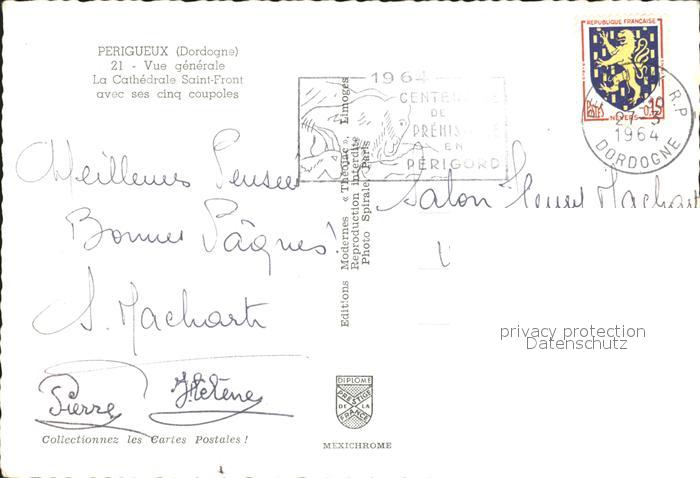 PERIGUEUX (Dordogne)
21 - Vue générale
La Cathédrale Saint-Front
avec ses cinq coupoles
1964
CENTENAIRE
DE
PRÉHISTOIRE
EN
PÉRIGORD
REPUBLIQUE FRANÇAISE
0,15
NEVERS
R.P
27-3
1964
DORDOGNE
Meilleures Pensées
Bonnes Pâques !
S. Machart
Pierre
Hélène
Collectionnez les Cartes Postales !
Editions Modernes « Théojac », Limoges
Reproduction interdite
Photo Spirale, Paris
Salon Machart
privacy protection
Datenschutz
DIPLOME
PRESTIGE
DE LA
FRANCE
MEXICHROME